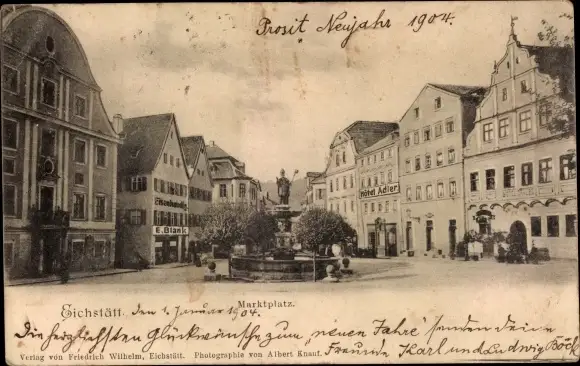 Prosit Neujahr 1904.
Hôtel Adler
Eisenhandlg
E. Blank
Marktplatz.
Eichstätt. den 1. Januar 1904.
Die herzlichsten Glückwünsche zum „neuen Jahre“ senden deine
Freunde Karl und Ludwig Böck
Verlag von Friedrich Wilhelm, Eichstätt. Photographie von Albert Knauf.